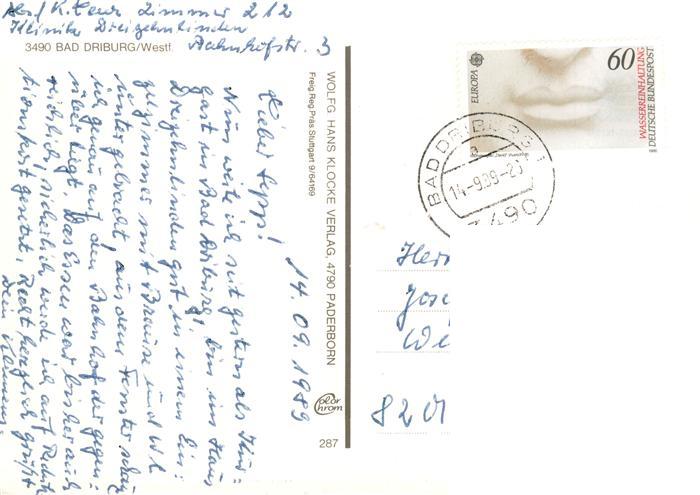 Zimmer 212
Klinik Dreizehnlinden
3490 BAD DRIBURG/Westf. Bahnhofstr. 3
14.09.1989
Lieber Sepp!
Nun weile ich seit gestern als Kur=
gast in Bad Driburg, bin im Haus
Dreizehnlinden gut in einem Ein=
zelzimmer mit Brause und WC
untergebracht, aus dem Fenster schau
ich genau auf den Bahnhof der gegen=
über liegt. Das Essen war bisher auch
reichlich, sicherlich werde ich auf Reduk
tionskost gesetzt. Recht herzlich grüßt
Dein Klemens
WOLFG HANS KLOCKE VERLAG, 4790 PADERBORN
Freig Reg Präs Stuttgart 9/64169
Color
Chrom
287
EUROPA
60
WASSERREINHALTUNG
DEUTSCHE BUNDESPOST
BAD DRIBURG 1
14-9.89-20
3490
Herr
Jos
We
820